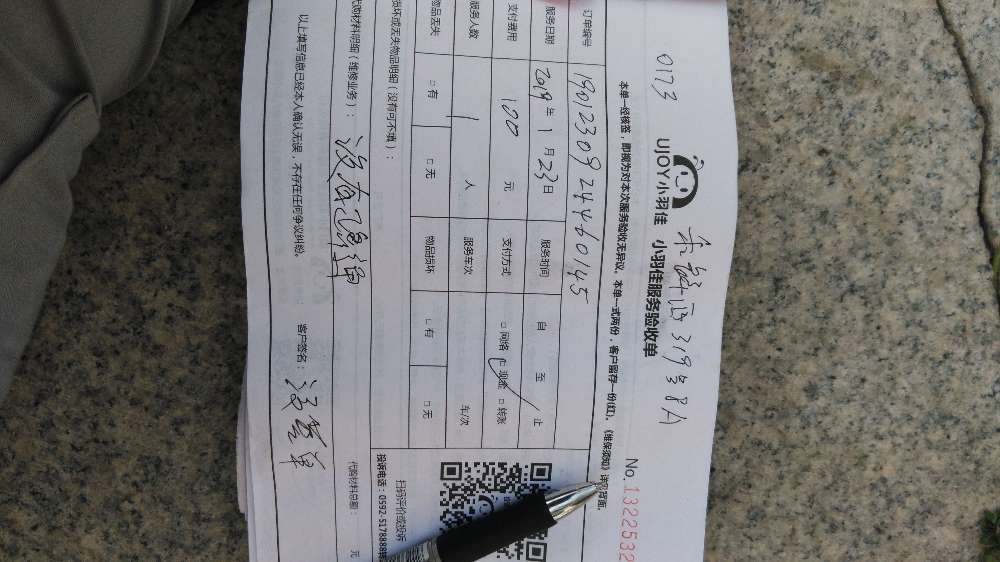 0173
UJOY小羽佳 小羽佳服务验收单
319号8A
No.1322532
本单一经核签，即视为对本次服务验收无异议。本单一式两份，客户留存一份(红)。《维保须知》详见背面。
订单编号 19012309244460145
服务日期 2019年1月23日 服务时间 自 至 止
支付费用 100元 支付方式 □网络 □现金 □转账
服务人数 1人 服务车次 车/次
物品丢失 □有 □无 物品损坏 □有 □无
损坏或丢失物品明细（没有可不填）：
扫码评价或投诉
投诉电话：0592-5178888转
代购材料明细（维修业务）： 代购材料总额： 元
以上填写信息已经本人确认无误，不存在任何争议纠纷。 客户签名：